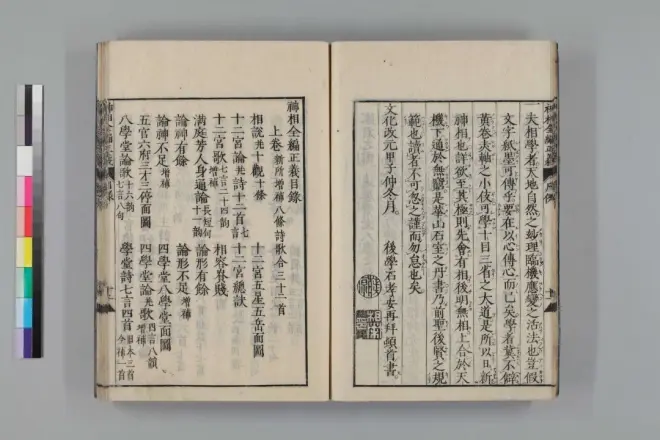 夫相學者天地自然之妙理臨機應變之活法也豈假
文字紙墨可傳乎要在以心傳心而已矣學者冀不
黃卷赤軸之小伎可學十目三省之大道是所以日新
神相也詳欲至其極則先會有相後明無相上合於天
機下通於無
範也讀者不可忽之謹而勿怠也矣
文化改元甲子仲冬月 後學石孝安再拜頓首書
神相全編正義目錄
上卷 新所增補八條詩歌合三十二首
相說 並十觀十條
十二宮論 並詩十二首 十二宮五星五岳面圖
十二宮 七言二十四韻 增補 十二宮總訣
滿庭芳人身通論十二韻 長短句 相容貴賤
論神有餘 論形有餘
論神不足 增補 論形不足 增補
五官六府三才三停面圖 四學堂八學堂面圖
八學堂論 並歌 十六韻 七言八句 四學堂論 並歌 四言八韻 增補
學堂詩七言四首